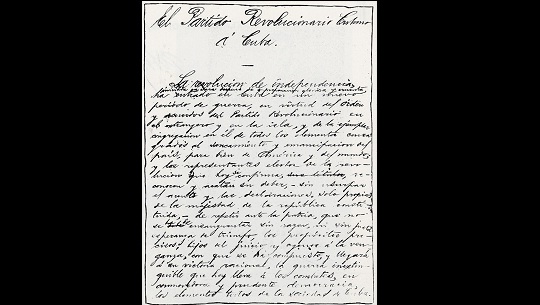 El Partido Revolucionario Cubano
á Cuba.
La revolucion de independencia,
iniciada en Yara despues de preparacion gloriosa y cruenta,
ha entrado en Cuba en un nuevo
período de guerra, en virtud del orden
y acuerdos del Partido Revolucionario en
el extranjero y en la isla, y de la ejemplar
congregacion en él de todos los elementos consa-
grados al saneamiento y emancipacion del
pais, para bien de América y del mundo;
y los representantes electos de la revo-
lucion que hoy se confirma, reco-
nocen y acatan su deber, - sin usurpar
el acento y las declaraciones solo propias
de la majestad de la república consti-
tuida, - de repetir ante la patria, que no
se ha de ensangrentar sin razon, ni sin justa
esperanza de triunfo, los propósitos pre-
cisos, hijos del juicio y ajenos á la ven-
ganza, con que se ha compuesto, y llegará
á su victoria racional, la guerra inextin-
guible que hoy lleva á los combates, en
conmovedora y prudente democracia,
los elementos todos de la sociedad de Cuba.